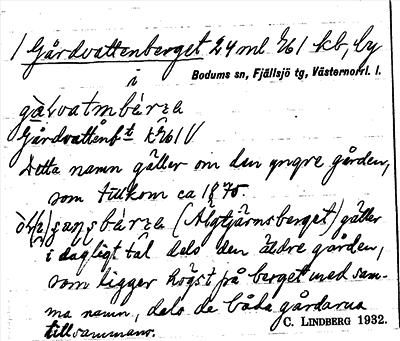 1 Gårdvattenberget 24 ml 1/61 kb, by
i
Bodums sn, Fjällsjö tg, Västernorrl. l.
Gårdvattänbt
Detta namn gäller om den yngre gården,
som tillkom ca 1870.
(Älgtjärnsberget) gäller
i dagligt tal dels den äldre gården,
som ligger högst på berget med sam-
ma namn, dels de båda gårdarna
tillsammans.
C. LINDBERG 1932.